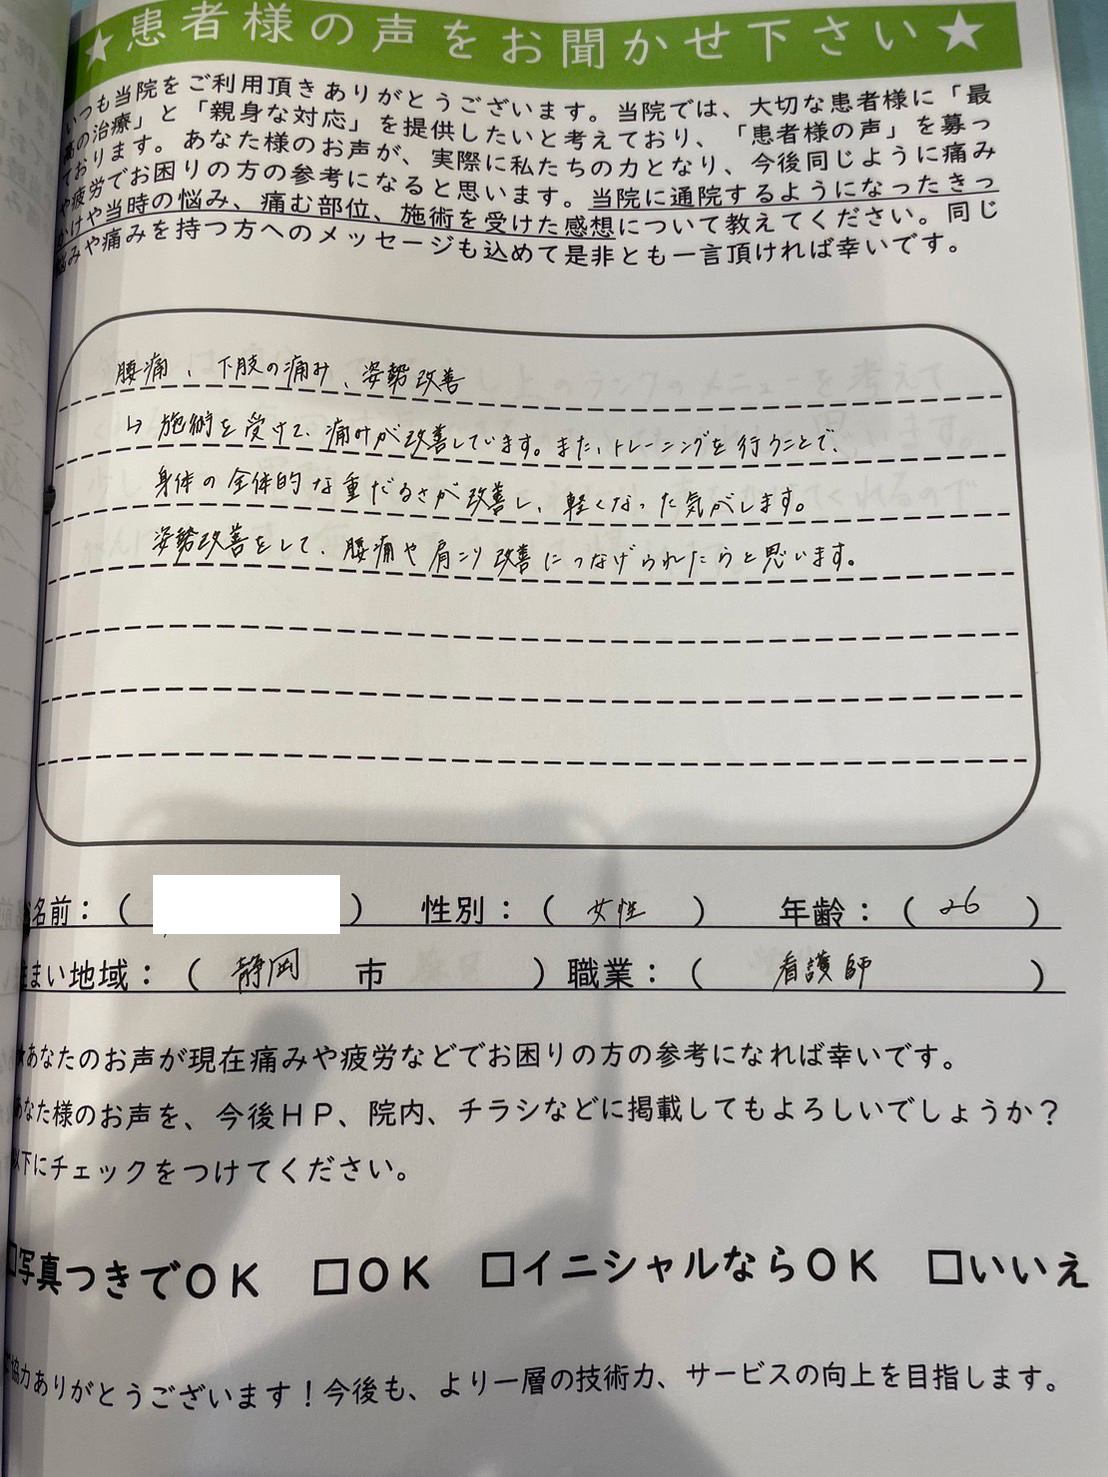 ★患者様の声をお聞かせ下さい★
いつも当院をご利用頂きありがとうございます。当院では、大切な患者様に「最
高の治療」と「親身な対応」を提供したいと考えており、「患者様の声」を募っ
ております。あなた様のお声が、実際に私たちの力となり、今後同じように痛み
や疲労でお困りの方の参考になると思います。当院に通院するようになったきっ
かけや当時の悩み、痛む部位、施術を受けた感想について教えてください。同じ
悩みや痛みを持つ方へのメッセージも込めて是非とも一言頂ければ幸いです。
腰痛、下肢の痛み、姿勢改善
↳ 施術を受けて、痛みが改善しています。また、トレーニングを行うことで、
身体の全体的な重だるさが改善し、軽くなった気がします。
姿勢改善をして、腰痛や肩こり改善につなげられたらと思います。
名前：（　　　） 性別：（ 女性 ） 年齢：（ 26 ）
住まい地域：（ 静岡 市 ） 職業：（ 看護師 ）
★あなたのお声が現在痛みや疲労などでお困りの方の参考になれば幸いです。
あなた様のお声を、今後ＨＰ、院内、チラシなどに掲載してもよろしいでしょうか？
以下にチェックをつけてください。
□写真つきでＯＫ □ＯＫ □イニシャルならＯＫ □いいえ
ご協力ありがとうございます！今後も、より一層の技術力、サービスの向上を目指します。